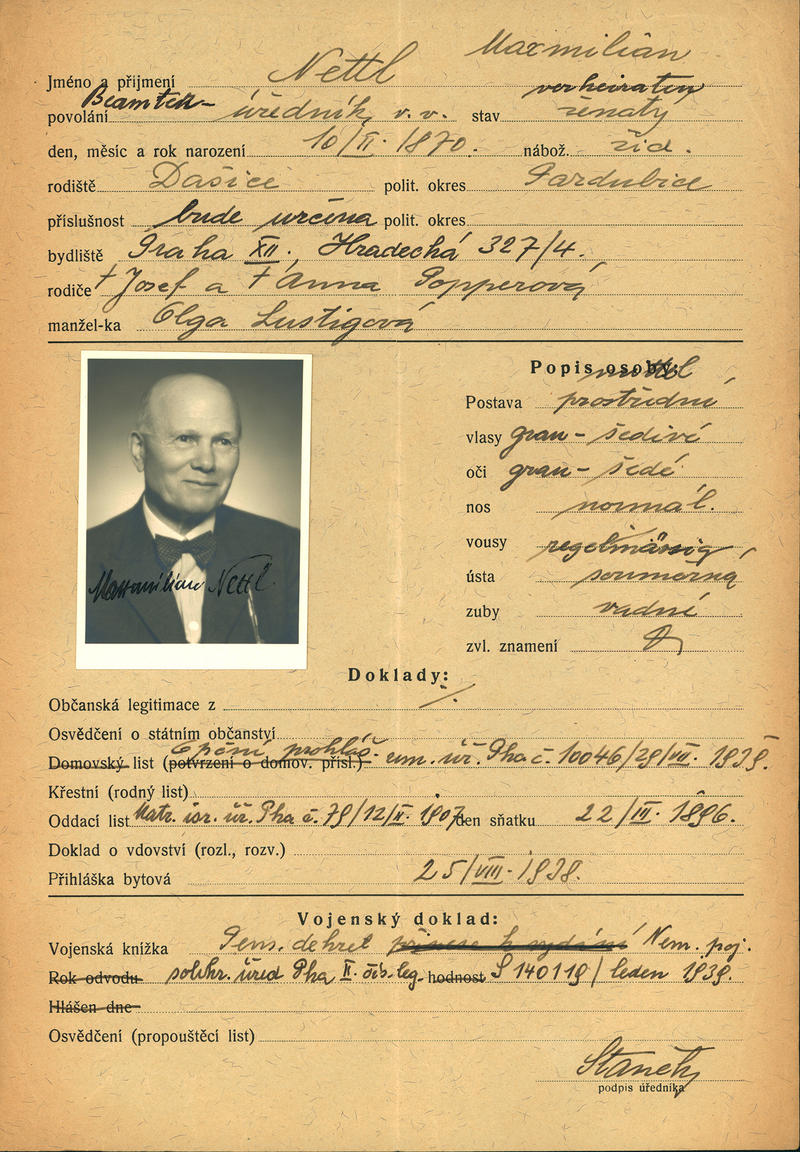 Maxmilián
Jméno a příjmení Nettl
Beamter - verheiraten
povolání úředník v. v. stav ženatý
den, měsíc a rok narození 10/II. 1870. nábož. žid.
rodiště Dašice polit. okres Pardubice
příslušnost bude určena polit. okres
bydliště Praha XII., Hradecká 327/4.
rodiče † Josef a † Anna Popperová
manžel-ka Olga Lustigová
Popis osoby:
mittel
Postava prostřední
vlasy grau - šedivé
oči grau - šedé
nos normál.
vousy regelmässig
ústa souměrná
zuby vadné
zvl. znamení
Maxmilian Nettl
Doklady:
Občanská legitimace z ./.
Osvědčení o státním občanství
Domovský list (potvrzení o domov. přísl.) prohláš. um. úř. Pha č. 10046/29/VII. 1939.
Křestní (rodný list)
Oddací list Matr. isr. úř. Pha č. 79/12/II. 1907 den sňatku 22/III. 1896.
Doklad o vdovství (rozl., rozv.)
Přihláška bytová 25/VIII. 1938.
Vojenský doklad:
Vojenská knížka Pens. dekret přinese k vydání Nem. poj.
Rok odvodu soukr. úřed Pha II. čís. leg. hodnost S 140119/leden 1939.
Hlášen dne
Osvědčení (propouštěcí list)
Staněk
podpis úředníka